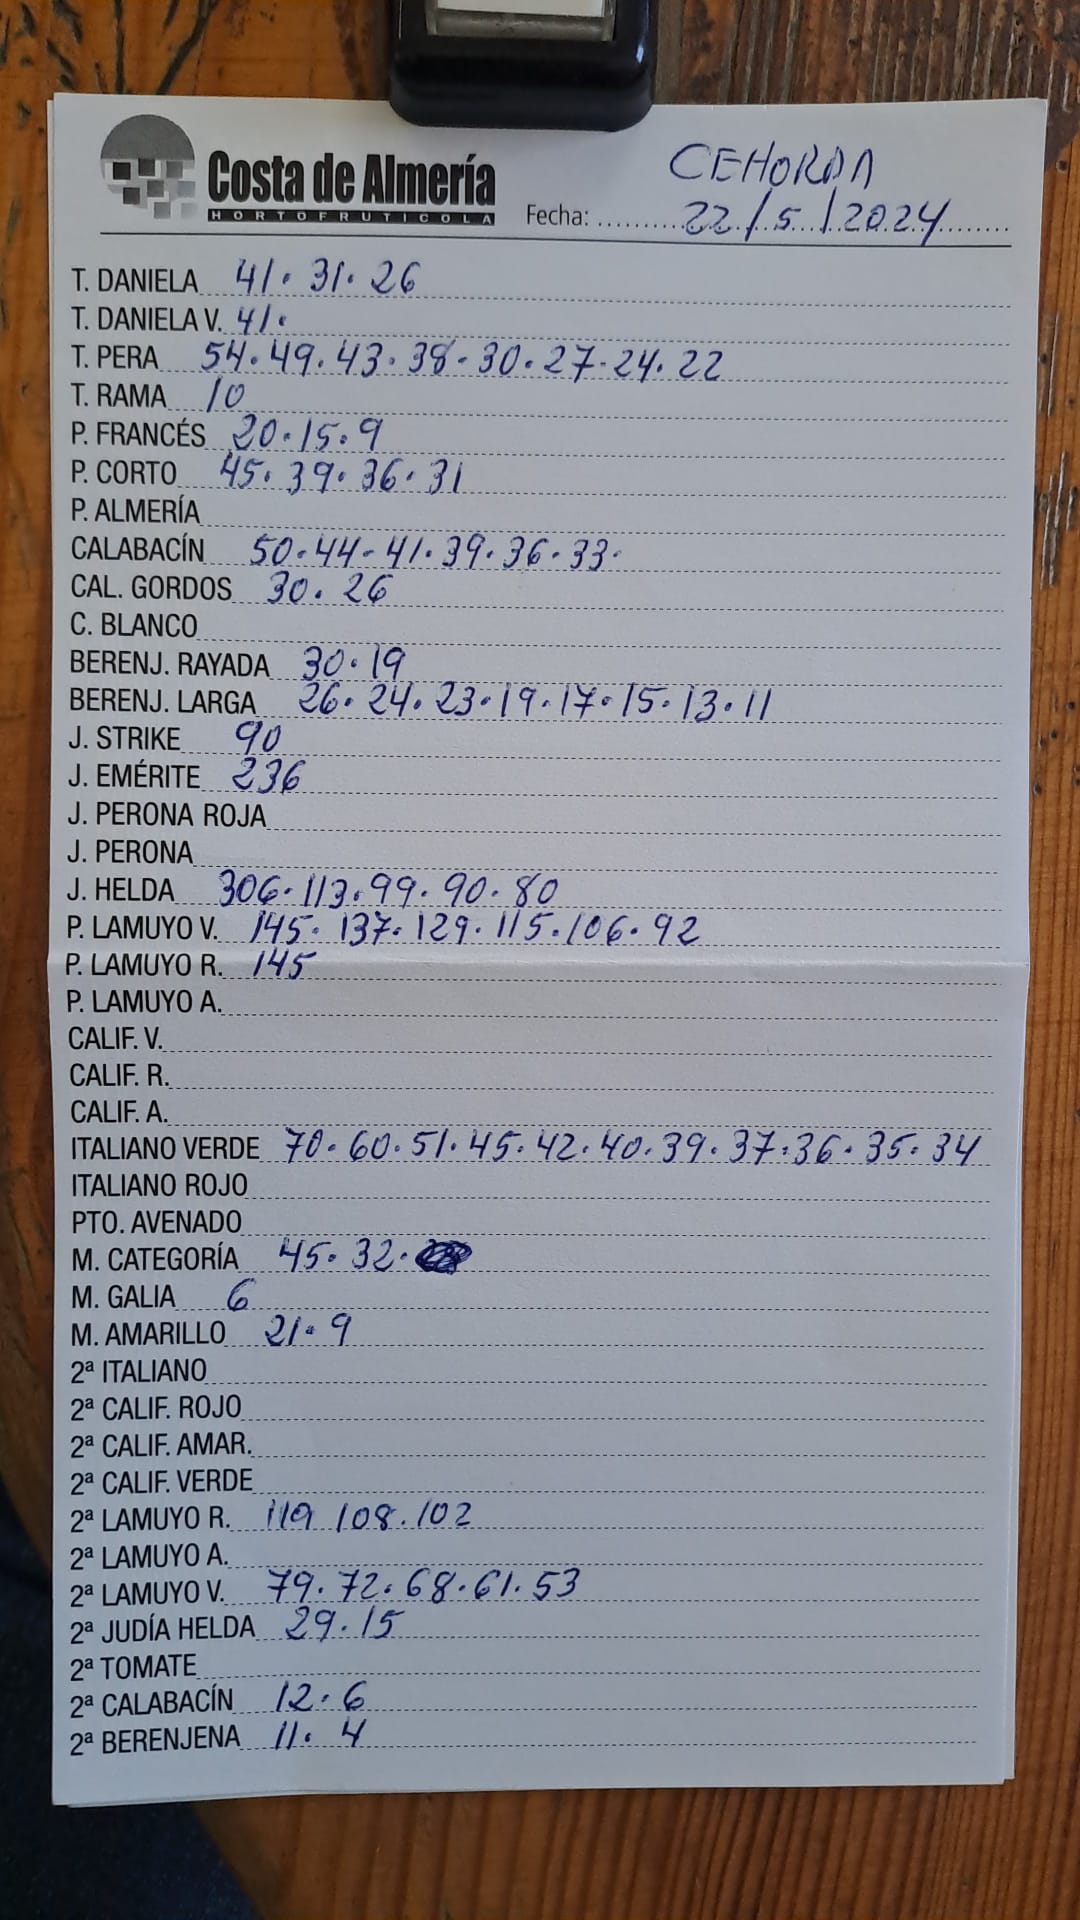 Costa de Almería
HORTOFRUTICOLA
CEHORPA
Fecha: 22/5/2024
T. DANIELA 41. 31. 26
T. DANIELA V. 41.
T. PERA 54. 49. 43. 38. 30. 27. 24. 22
T. RAMA 10
P. FRANCÉS 20. 15. 9
P. CORTO 45. 39. 36. 31
P. ALMERÍA
CALABACÍN 50. 44. 41. 39. 36. 33.
CAL. GORDOS 30. 26
C. BLANCO
BERENJ. RAYADA 30. 19
BERENJ. LARGA 26. 24. 23. 19. 17. 15. 13. 11
J. STRIKE 90
J. EMÉRITE 236
J. PERONA ROJA
J. PERONA
J. HELDA 306. 113. 99. 90. 80
P. LAMUYO V. 145. 137. 129. 115. 106. 92
P. LAMUYO R. 145
P. LAMUYO A.
CALIF. V.
CALIF. R.
CALIF. A.
ITALIANO VERDE 70. 60. 51. 45. 42. 40. 39. 37. 36. 35. 34
ITALIANO ROJO
PTO. AVENADO
M. CATEGORÍA 45. 32.
M. GALIA 6
M. AMARILLO 21. 9
2ª ITALIANO
2ª CALIF. ROJO
2ª CALIF. AMAR.
2ª CALIF. VERDE
2ª LAMUYO R. 119 108. 102
2ª LAMUYO A.
2ª LAMUYO V. 79. 72. 68. 61. 53
2ª JUDÍA HELDA 29. 15
2ª TOMATE
2ª CALABACÍN 12. 6
2ª BERENJENA 11. 4